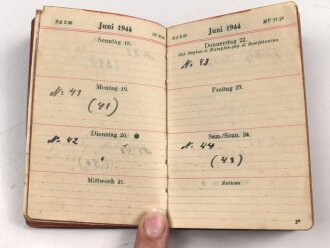 Juni 1944
Sonntag 18.
Montag 19.
No. 41
(41)
Dienstag 20.
No. 42
Mittwoch 21.
Juni 1944
Donnerstag 22.
No. 43
Freitag 23.
Sam./Sonn. 24.
No. 44
(43)
Notizen